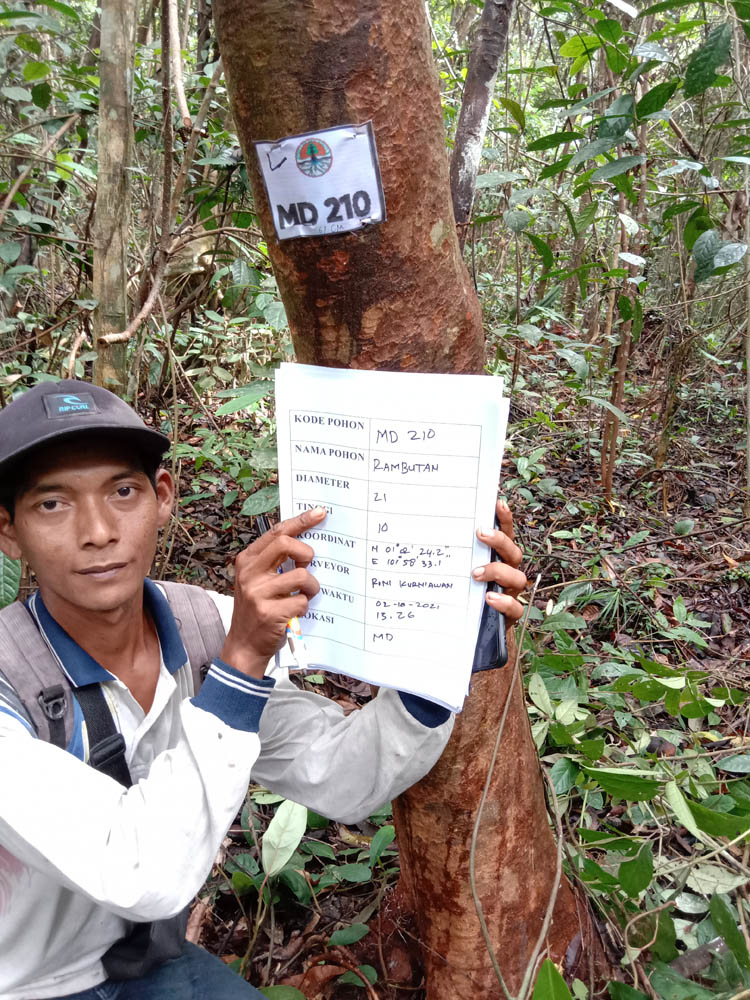 MD 210
RIP CURL
KODE POHON MD 210
NAMA POHON RAMBUTAN
DIAMETER 21
TINGGI 10
KOORDINAT N 01° 02' 24.2"
E 101° 58' 33.1
RVEYOR RONI KURNIAWAN
WAKTU 02-10-2021
13.26
OKASI MD